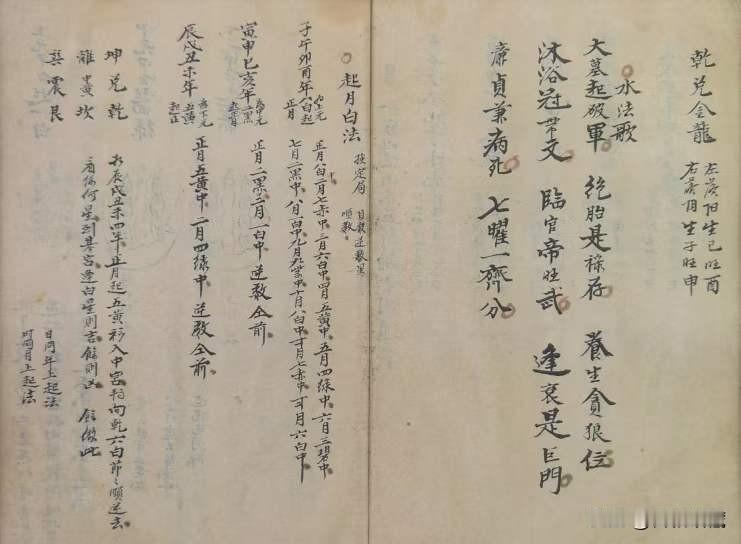 乾兌金龍
左旋阳生巳旺酉
右旋阴生子旺申
水法歌
大墓起破軍 絶胎是祿存 養生貪狼位
沐浴冠帶文 臨官帝旺武 逢衰是巨門
廉貞兼病死 七曜一齊分
起月白法 按定局
順数
子午卯酉年 八白起正月 上元
正月八白二月七赤中三月六白中四月五黄中五月四緑中六月三碧中
七月二黑中八月一白中九月九紫中十月八白中十一月七赤中十二月六白中
寅申巳亥年 二黑 中元
正月二黑二月一白中逆数仝前
辰戌丑未年 为下元 五黄起正
正月五黄中二月四緑中逆数仝前
坤兌乾
離中黄坎
巽震艮
如辰戌丑未四年正月起五黄移入中宮相向乾六白節々順逆去
看係何星到某宮逢白星則吉餘則凶 餘倣此
日同年上起法
时同月上起法